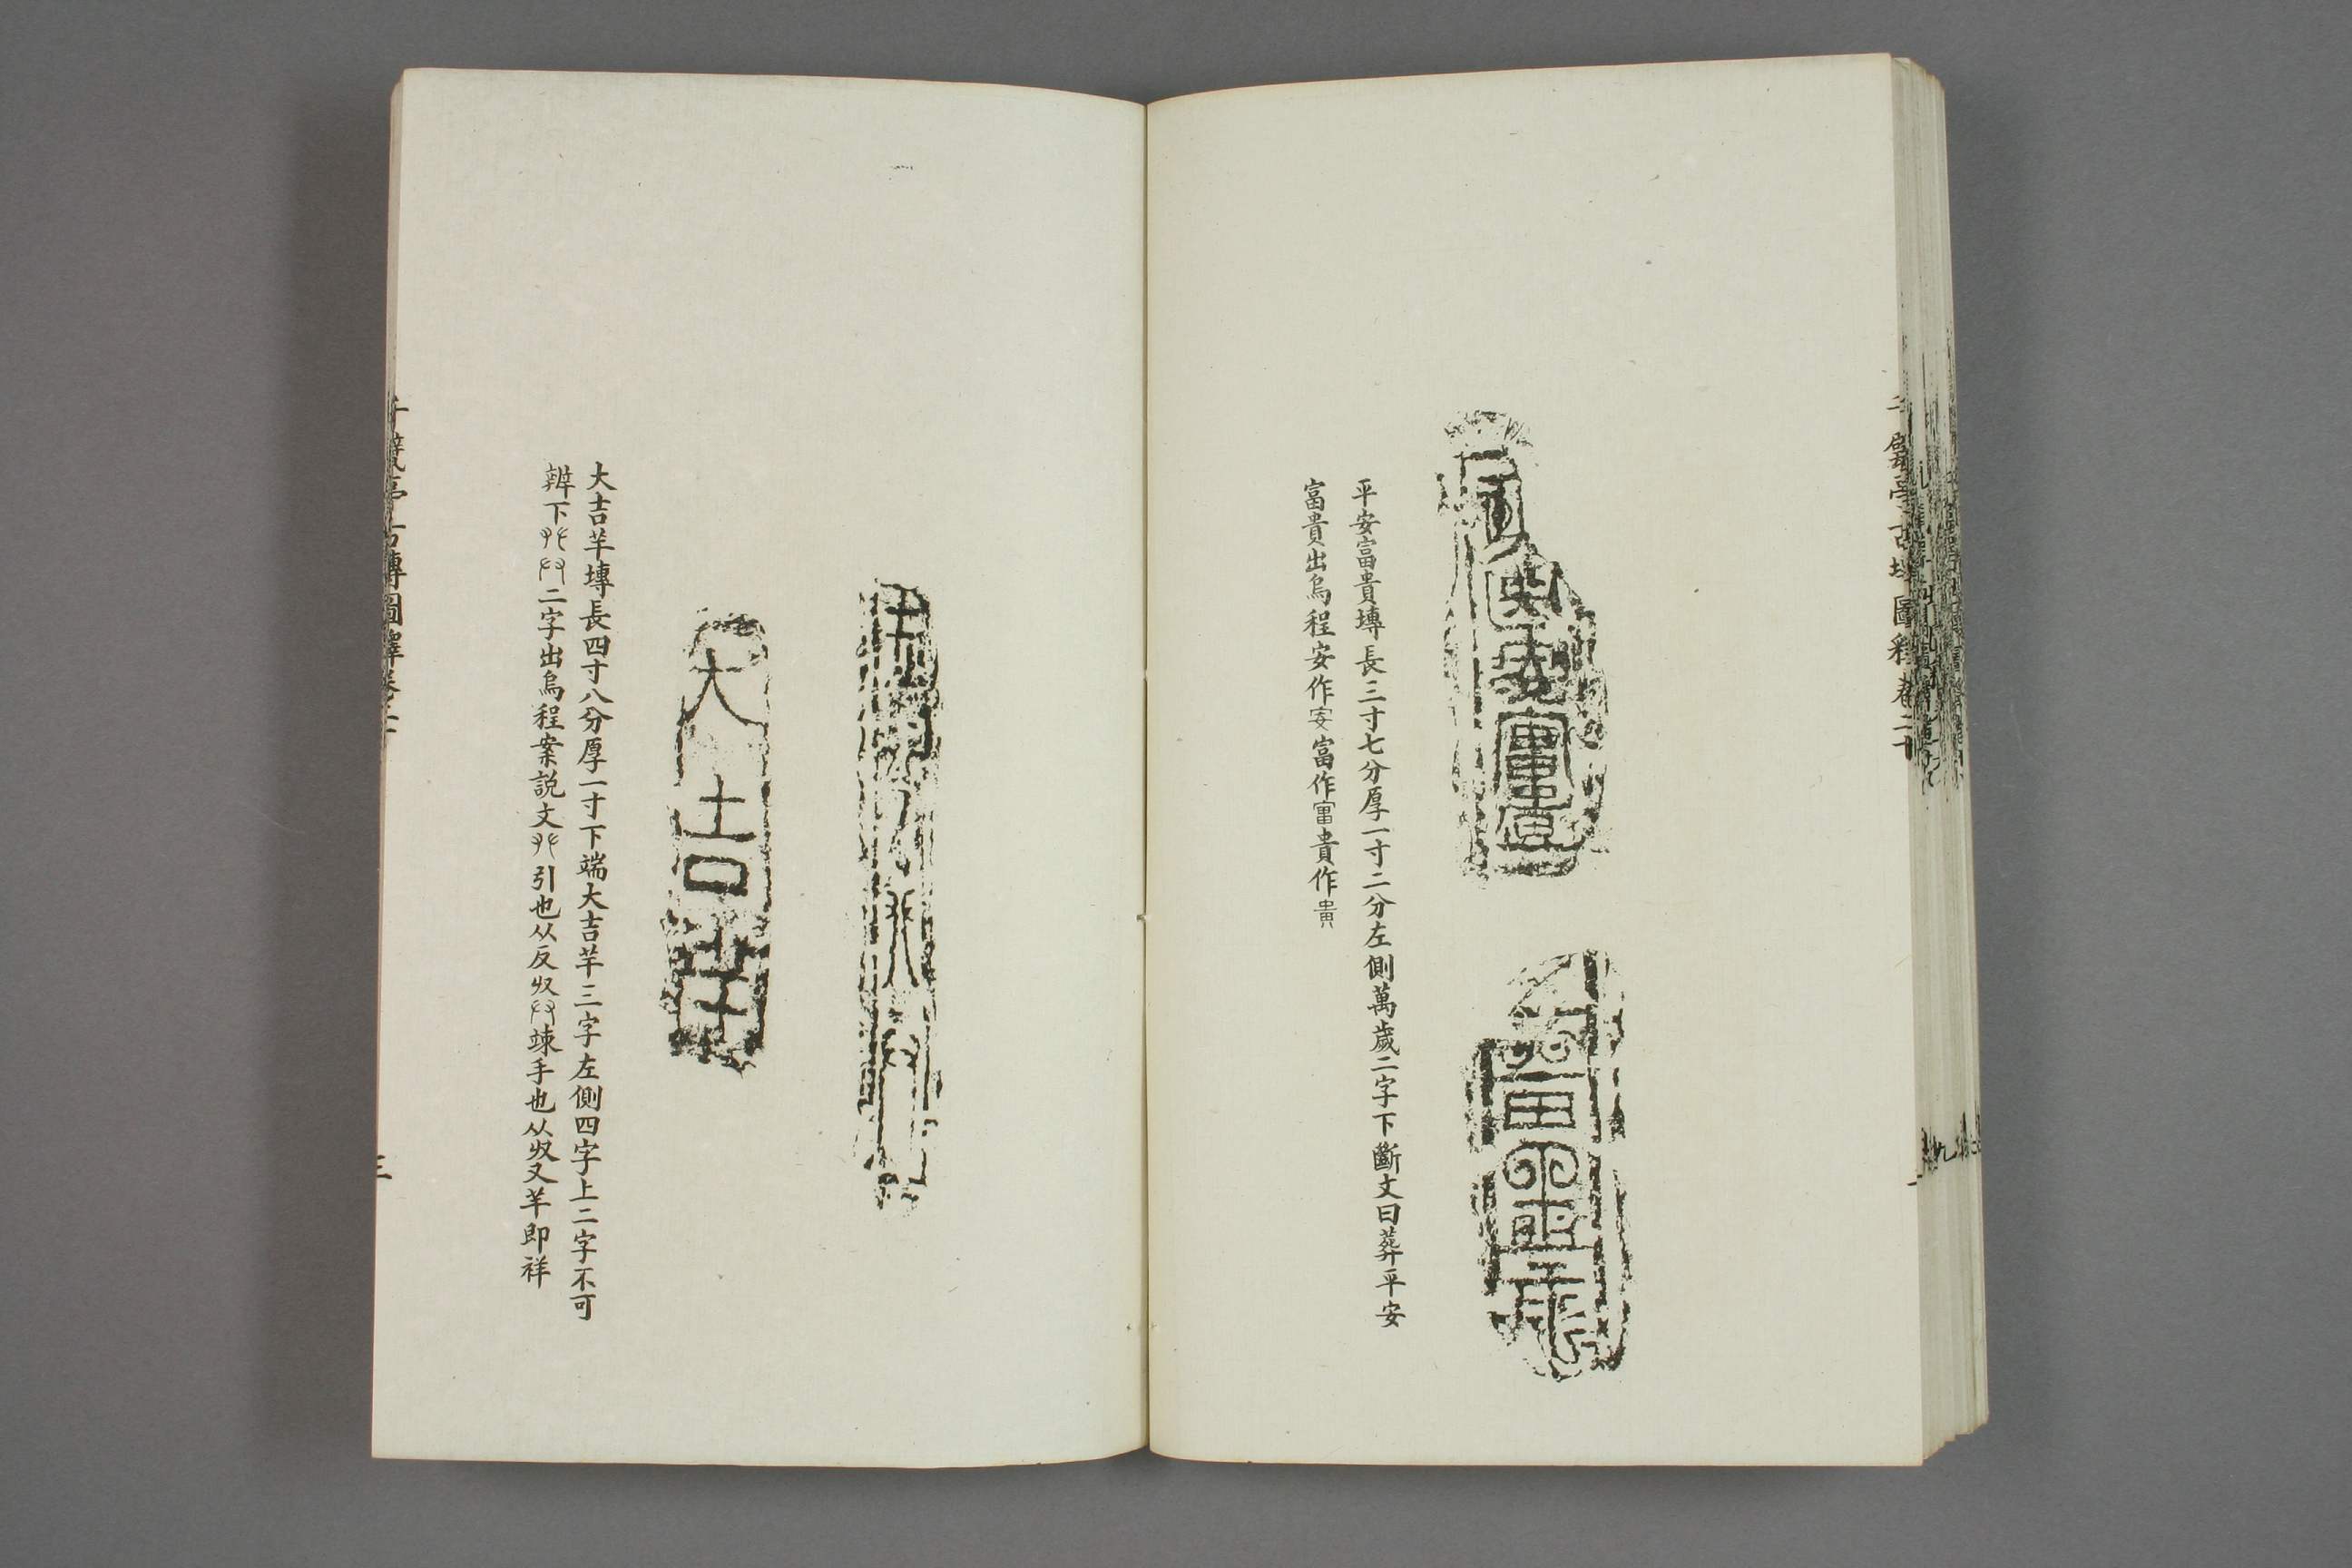 平安富貴塼長三寸七分厚一寸二分左側萬歲二字下斷文曰葬平安
富貴出烏程安作安富作富貴作貴
大吉羊塼長四寸八分厚一寸下端大吉羊三字左側四字上二字不可
辨下𠬜𠬞二字出烏程案說文𠬜引也从反𠬞𠬞竦手也从𠬞又羊即祥
大吉羊
千甓亭古塼圖釋卷二十
三